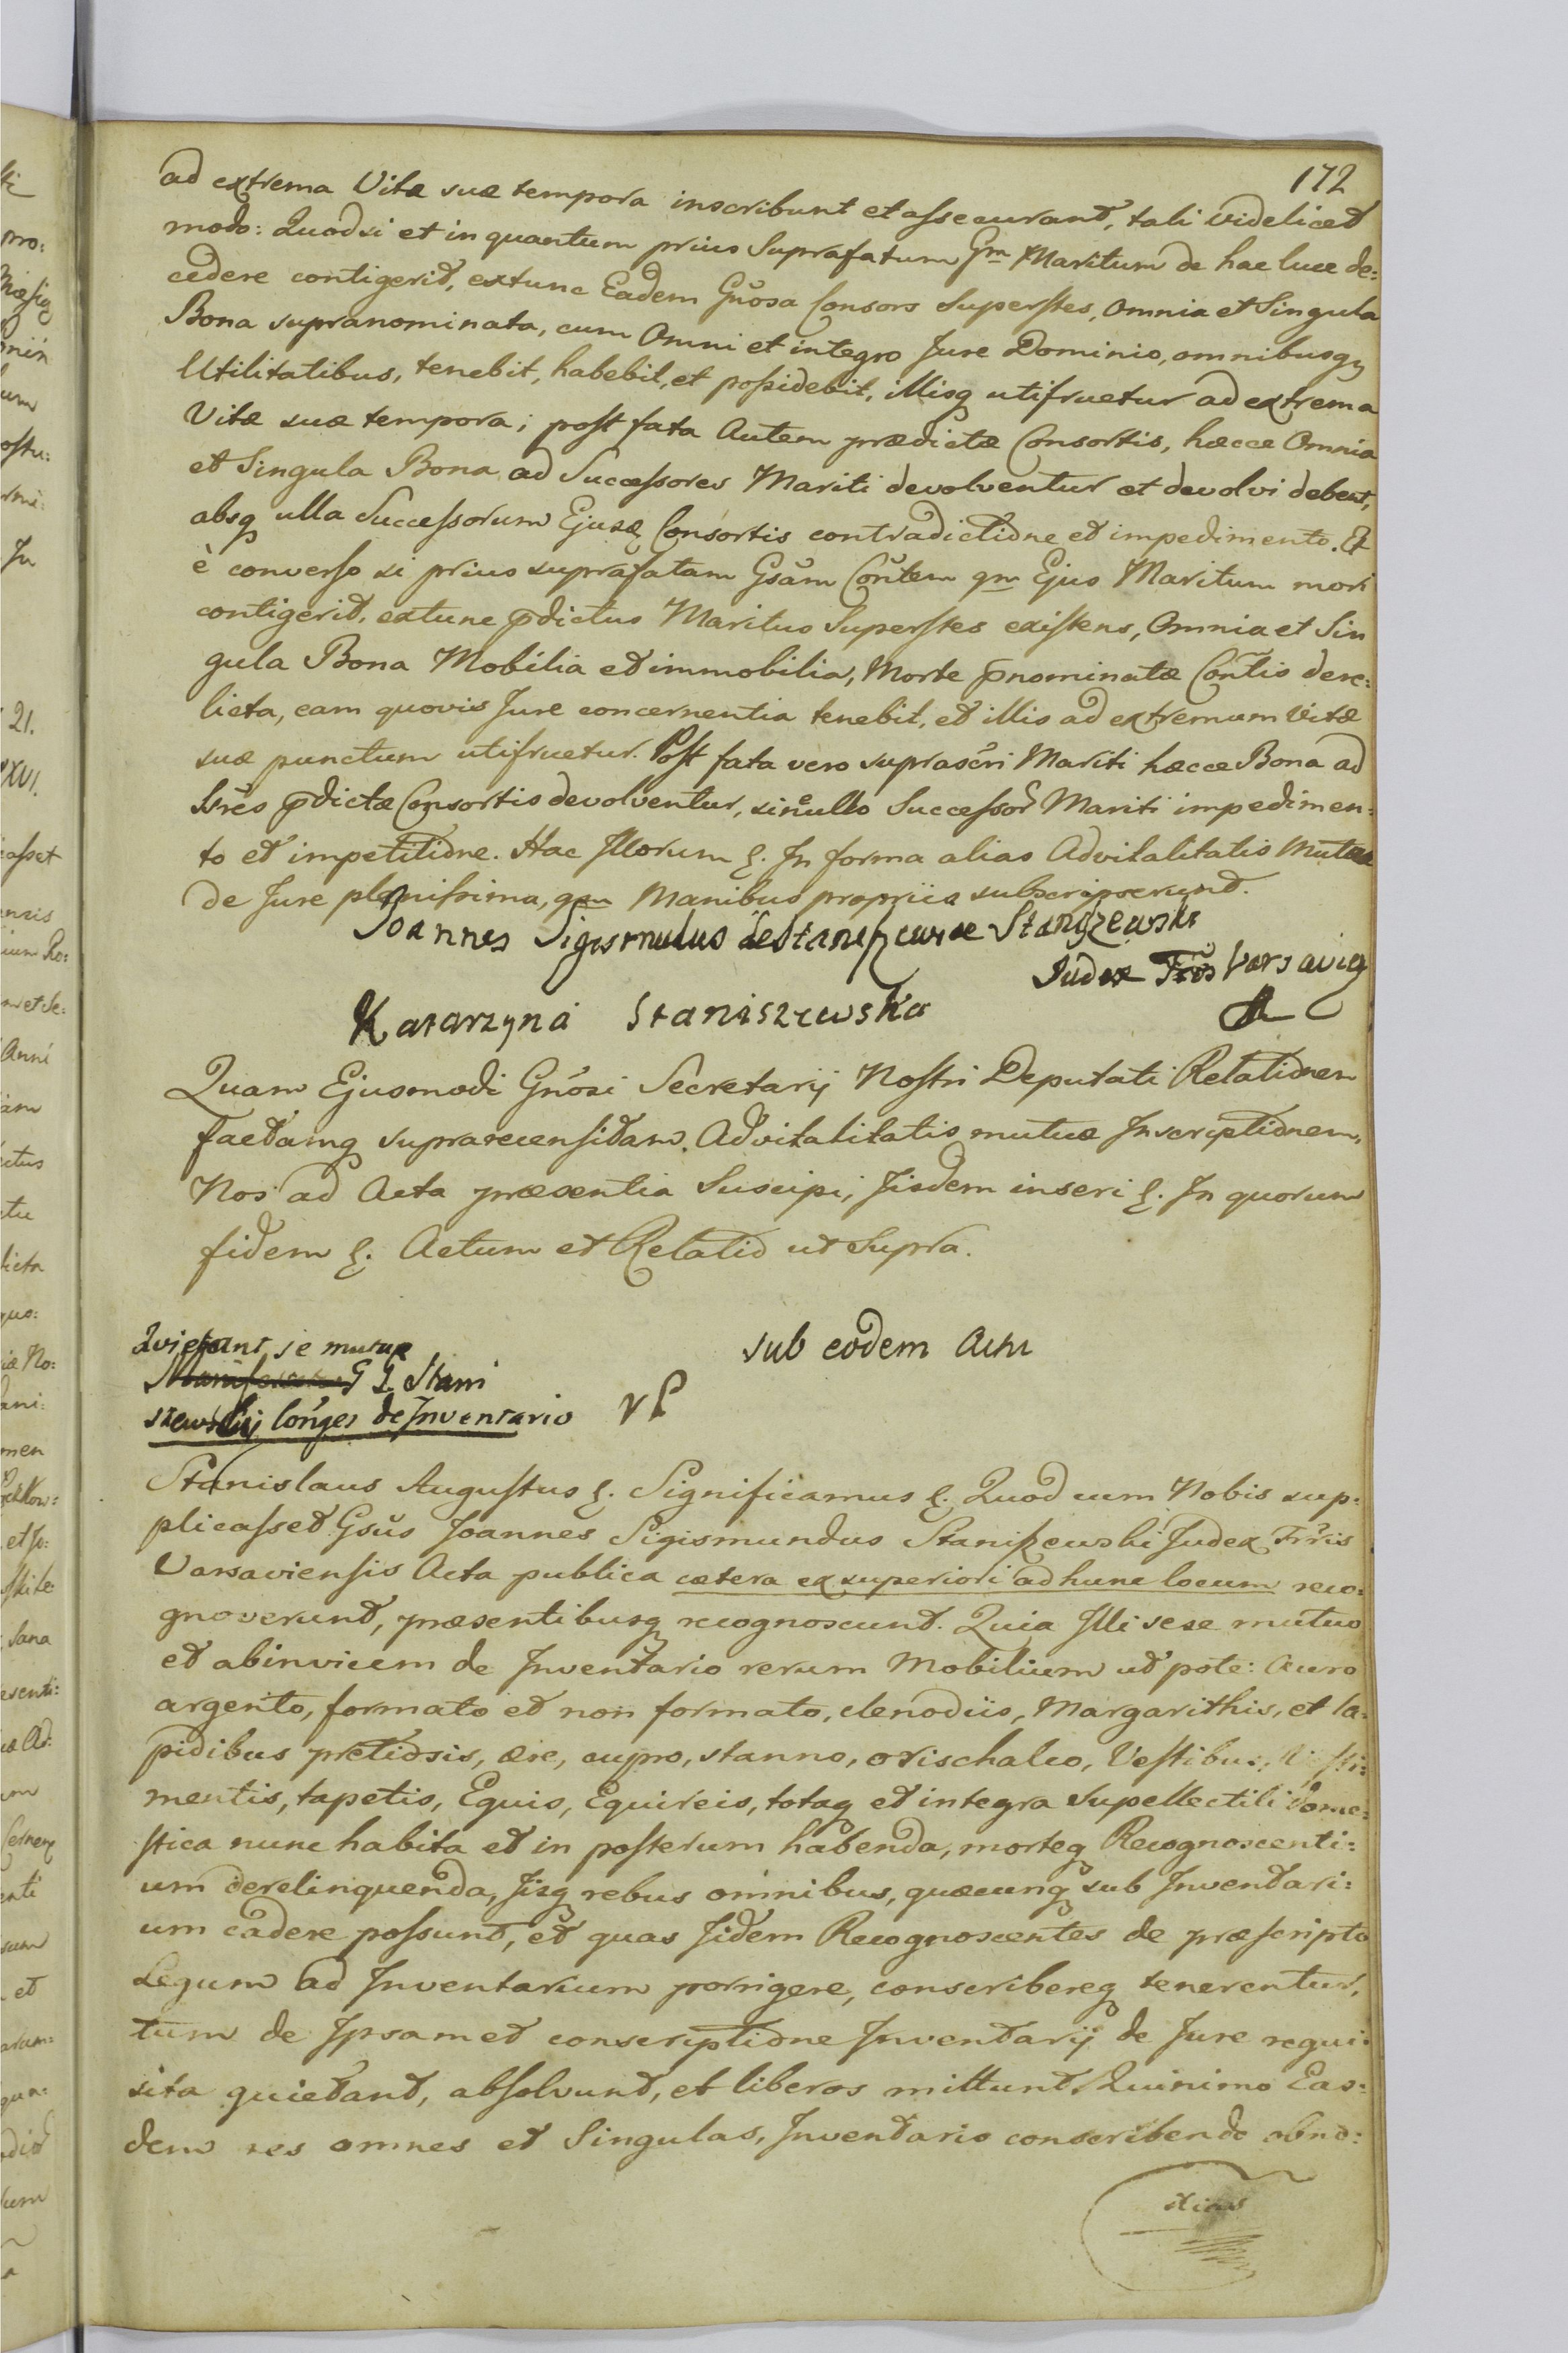 172
ad extrema Vitæ suæ tempora inscribunt et assecurant, tali videlicet
modo: Quod si et in quantum prius Suprafatum Gm Maritum de hac luce de:
cedere contigerit, extunc Eadem Gnosa Consors Superstes, Omnia et Singula
Bona supranominata, cum Omni et integro Jure Dominio, omnibusq
Utilitatibus, tenebit, habebit, et possidebit, illisq utifruetur ad extrema
Vitæ suæ tempora; post fata Autem prædictæ Consortis, hæcce Omnia
et Singula Bona ad Successores Mariti devolventur et devolvi debent,
absq ulla Successorum Ejusd Consortis contradictione et impedimento. Et
è converso si prius suprafatam Gsam Contem qm Ejus Maritum mori
contigerit, extunc pdictus Maritus Superstes existens, Omnia et Sin
gula Bona Mobilia et immobilia, Morte pnominatæ Contis dere:
licta, eam quovis Jure concernentia tenebit, et illis ad extremum Vitæ
suæ punctum utifruetur. Post fata vero suprascri Mariti hæcce Bona ad
Sres pdictæ Consortis devolventur, sine ullo Successor Mariti impedimen:
to et impetitione. Hac Illorum &. In forma alias Advitalitatis Mutuæ
de Jure plenissima, qm Manibus propriis subscripserunt.
Joannes Sigismudus de Staniszewie Staniszewski
Judex Fris Varsavien
Katarzyna Staniszewska
Quam Ejusmodi Gnosi Secretarij Nostri Deputati Relationem
factamq suprarecensitam Advitalitatis mutuæ Inscriptionem,
Nos ad Acta præsentia Suscipi, Iisdem inseri &. In quorum
fidem &. Actum et Relatio ut Supra.
Sub eodem Actu
Quietant se mutuo
G G Stani
szewskij Conges de Inventario
Stanislaus Augustus &. Significamus &. Quod cum Nobis sup:
plicasset Gsus Joannes Sigismundus Staniszewski Judex Frris
Varsaviensis Acta publica cætera ex superiori ad hunc locum reco:
gnoverunt, præsentibusq recognoscunt. Quia Illi sese mutuo
et abinvicem de Inventario rerum Mobilium ut pote: Auro
argento, formato et non formato, clenodiis, Margarithis, et la:
pidibus pretiosis, ære, cupro, stanno, orischalco, Vestibus, Vesti:
mentis, tapetis, Equis, Equireis, totaq et integra Supellectili dome:
stica nunc habita et in posterum habenda, morteq Recognoscenti:
um derelinquenda, Iisq rebus omnibus, quæcunq sub Inventari:
um cadere possunt, et quas Iidem Recognoscentes de præscripto
Legum ad Inventarium porrigere, conscribereq tenerentur,
tum de Ipsamet conscriptione Inventarij de Jure requi:
sita quietant, absolvunt, et liberos mittunt. Quinimo Eas:
dem res omnes et Singulas, Inventario conscribendo obno:
xias